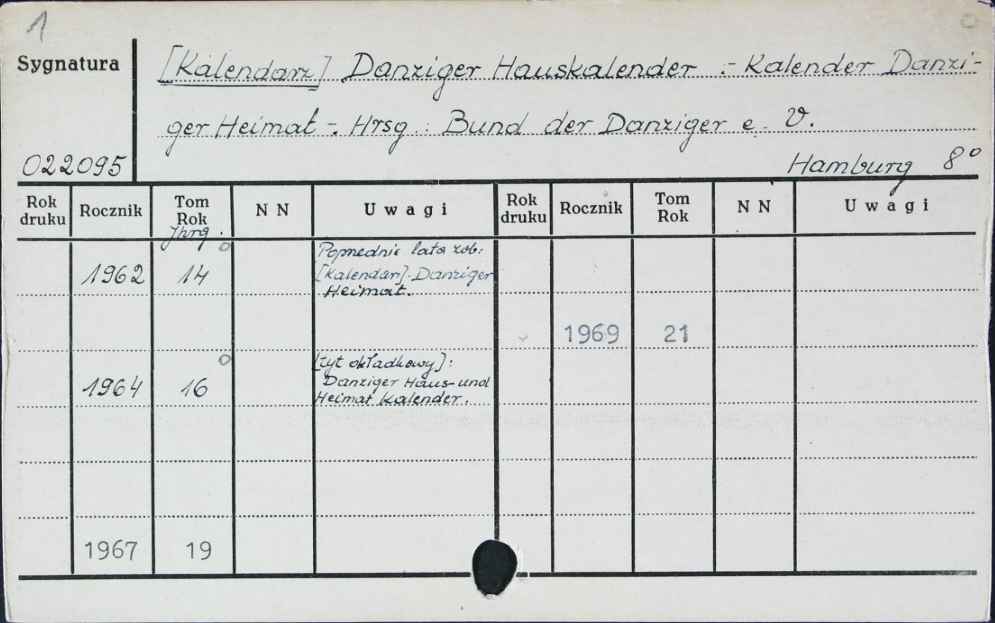 1
Sygnatura
[Kalendarz] Danziger Hauskalender :- Kalender Danzi-
ger Heimat -. Hrsg.: Bund der Danziger e. V.
022095
Hamburg 8°
Rok druku Rocznik Tom Rok N N Uwagi Rok druku Rocznik Tom Rok N N Uwagi
Jhrg.
1962 14 Poprzednie lata zob:
[kalendarz]. Danziger
Heimat.
1969 21
1964 16 [tyt okładkowy]:
Danziger Haus- und
Heimat Kalender.
1967 19